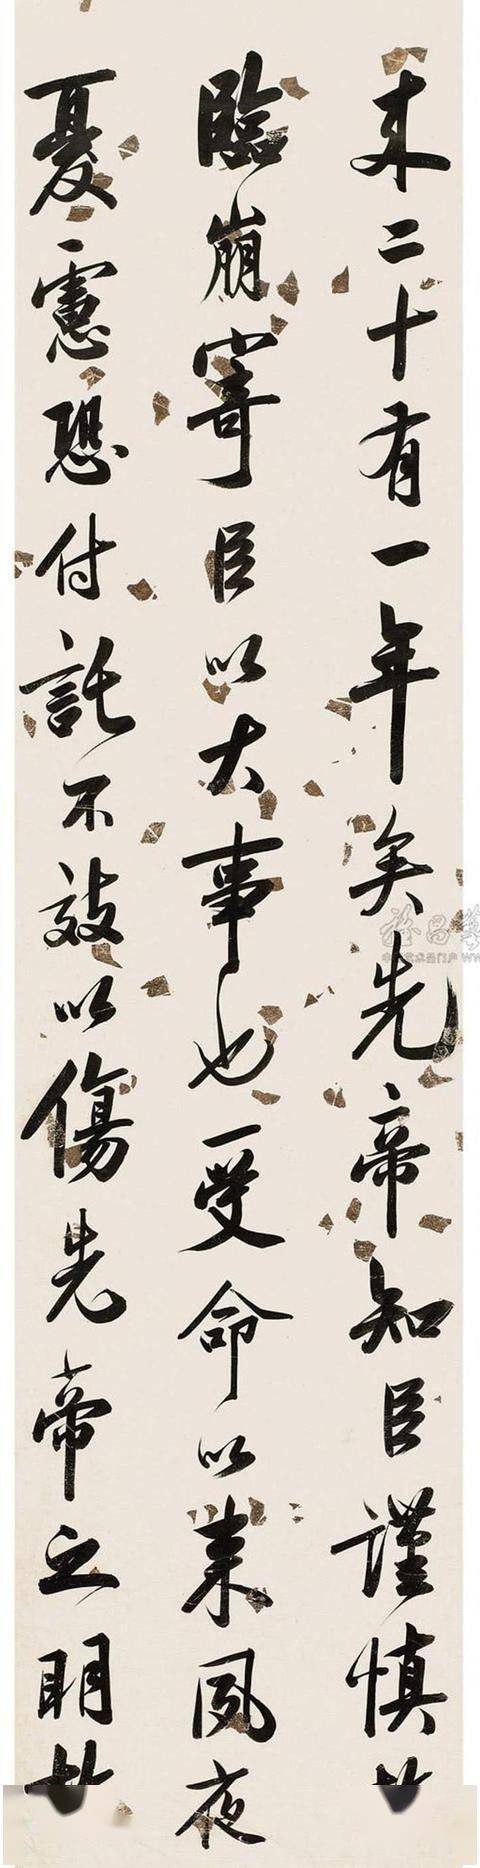 来二十有一年矣先帝知臣謹慎
臨崩寄臣以大事也受命以来夙夜
憂慮恐付託不效以傷先帝之明